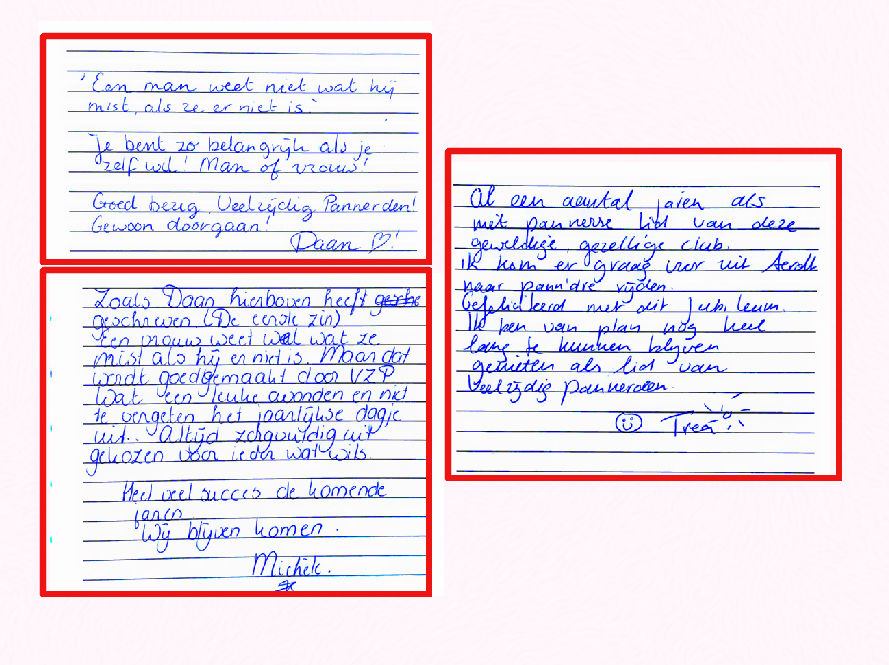 'Een man weet niet wat hij
mist, als ze er niet is.'
Je bent zo belangrijk als je
zelf wil! Man of vrouw!
Goed bezig, Veelzijdig Pannerden!
Gewoon doorgaan!
Daan ♡!
Zoals Daan hierboven heeft
geschreven (De eerste zin)
Een vrouw weet wel wat ze
mist als hij er niet is. Maar dat
wordt goedgemaakt door VZP
Wat een leuke avonden en niet
te vergeten het jaarlijkse dagje
uit.. Altijd zorgvuldig uit
gekozen voor ieder wat wils.
Heel veel succes de komende
jaren.
Wij blijven komen.
Michèl.
Al een aantal jaren als
niet pannerse lid van deze
geweldige gezellige club.
Ik kom er graag voor uit
naar pann'dre rijden.
Gefeliciteerd met dit Jubileum.
Ik ben van plan nog heel
lang te kunnen blijven
genieten als lid van
Veelzijdig Pannerden.
☺ Trea